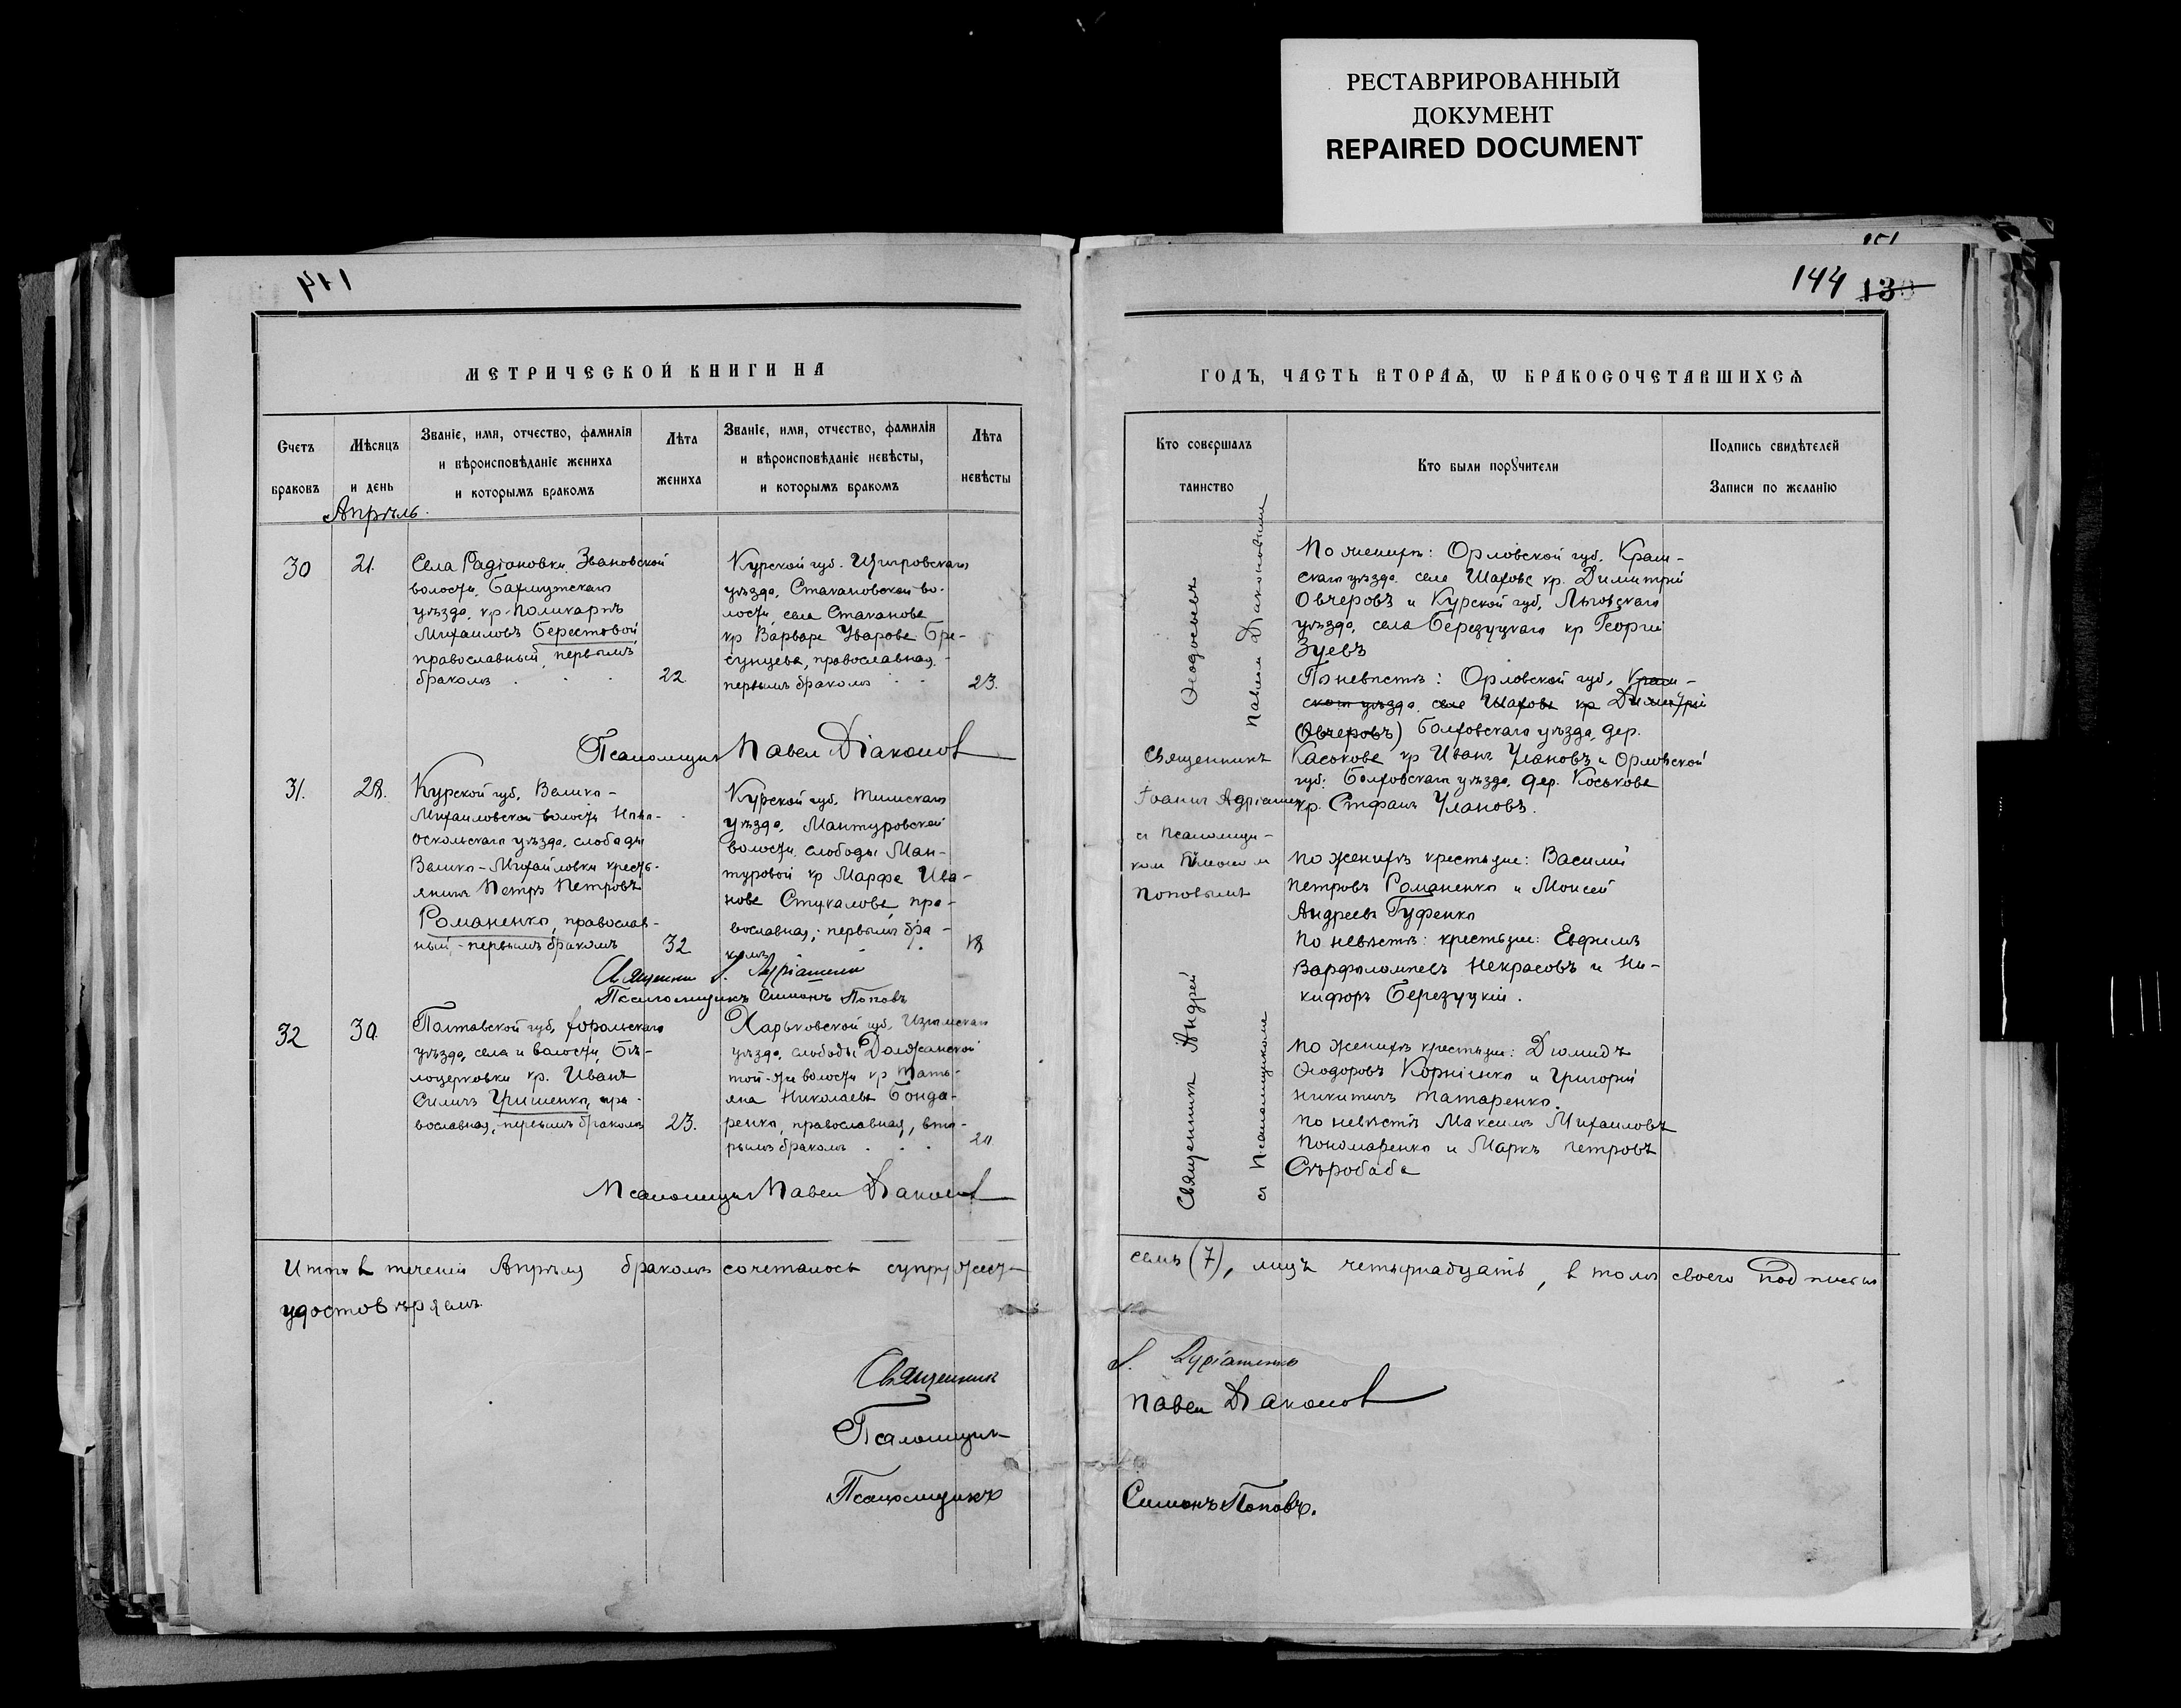 РЕСТАВРИРОВАННЫЙ
ДОКУМЕНТ
REPAIRED DOCUMENT
141
МЕТРИЧЕСКОЙ КНИГИ НА
Счетъ браковъ
Мѣсяцъ и день
Званіе, имя, отчество, фамилія
и вѣроисповѣданіе жениха
и которымъ бракомъ
Лѣта жениха
Званіе, имя, отчество, фамилія
и вѣроисповѣданіе невѣсты,
и которымъ бракомъ
Лѣта невѣсты
Апрѣль
30
21.
Села Радіоновки, Звановской
волости, Бахмутскаго
уѣзда, кр. Поликарпъ
Михаиловъ Берестовой
православный, первымъ
бракомъ
22
Курской губ. Щигровскаго
уѣзда, Стакановской во-
лости, села Стаканова
кр Варвара Уварова Бре-
сунцева, православная,
первымъ бракомъ
23.
Псаломщикъ Павел Діаконов
31.
28.
Курской губ, Велико-
Михаиловской волости Ново-
оскольскаго уѣзда, слободы
Велико-Михайловки кресть-
янинъ Петръ Петровъ
Романенко, православ-
ный, первымъ бракомъ
32
Курской губ, Тимскаго
уѣзда, Мантуровской
волости, слободы Ман-
туровой кр Марфа Ива-
нова Стукалова, пра-
вославная, первымъ бра-
комъ
18
Священник І. Адріашенко
Псаломщикъ Симонъ Поповъ
32
30.
Полтавской губ, Хорольскаго
уѣзда, села и волости, Бѣ-
лоцерковки кр. Иванъ
Силичъ Гришенко, пра-
вославная, первымъ бракомъ
23.
Харьковской губ, Изюмскаго
уѣзда, слободы Должанской
той-же волости кр Тать-
яна Николаева Бонда-
ренко, православная, вто-
рымъ бракомъ
20.
Псаломщикъ Павел Діаконов
Итого в теченіи Апрѣля бракомъ сочеталось супружеств
удостовѣряемъ
Священник
Псаломщик
Псаломщикъ
144 138
ГОДЪ, ЧАСТЬ ВТОРАѦ, Ѡ БРАКОСОЧЕТАВШИХСѦ
Кто совершалъ таинство
Кто были порꙋчители
Подпись свидѣтелей
Записи по желанію
Павлом Діаконовымъ
По женихѣ: Орловской губ, Кром-
скаго уѣзда, села Шахова кр. Димитрій
Овчеровъ и Курской губ, Льговскаго
уѣзда, села Березуцкаго кр Георгій
Зуевъ
По невѣстѣ: Орловской губ, Кром-
скаго уѣзда, села Шахова кр Димитрій
Овчеровъ) Болховскаго уѣзда, дер.
Касокова кр Иванъ Улановъ и Орловской
губ: Болховскаго уѣзда, дер. Коськова
кр. Стефанъ Улановъ.
Священникъ
Іоаннъ Адріашен
съ псаломщи-
ком Симоном
Поповымъ
По женихѣ крестьяне: Василий
Петровъ Романенко и Моисей
Андреевъ Гуфенко
По невѣстѣ: крестьяне: Евфимъ
Варфоломѣевъ Некрасовъ и Ни-
кифоръ Березуцкій.
Священникъ Андрей
съ Псаломщикомъ
По женихѣ крестьяне: Дюмидъ
Ѳеодоровъ Корніенко и Григорій
Никитичъ Татаренко.
По невѣстѣ Максимъ Михаиловъ
Пономаренко и Маркъ Петровъ
Сѣробаба
семь (7), лицъ четырнадцать, в томъ своего подписью
І. Адріашенко
Павел Діаконов
Симонъ Поповъ.